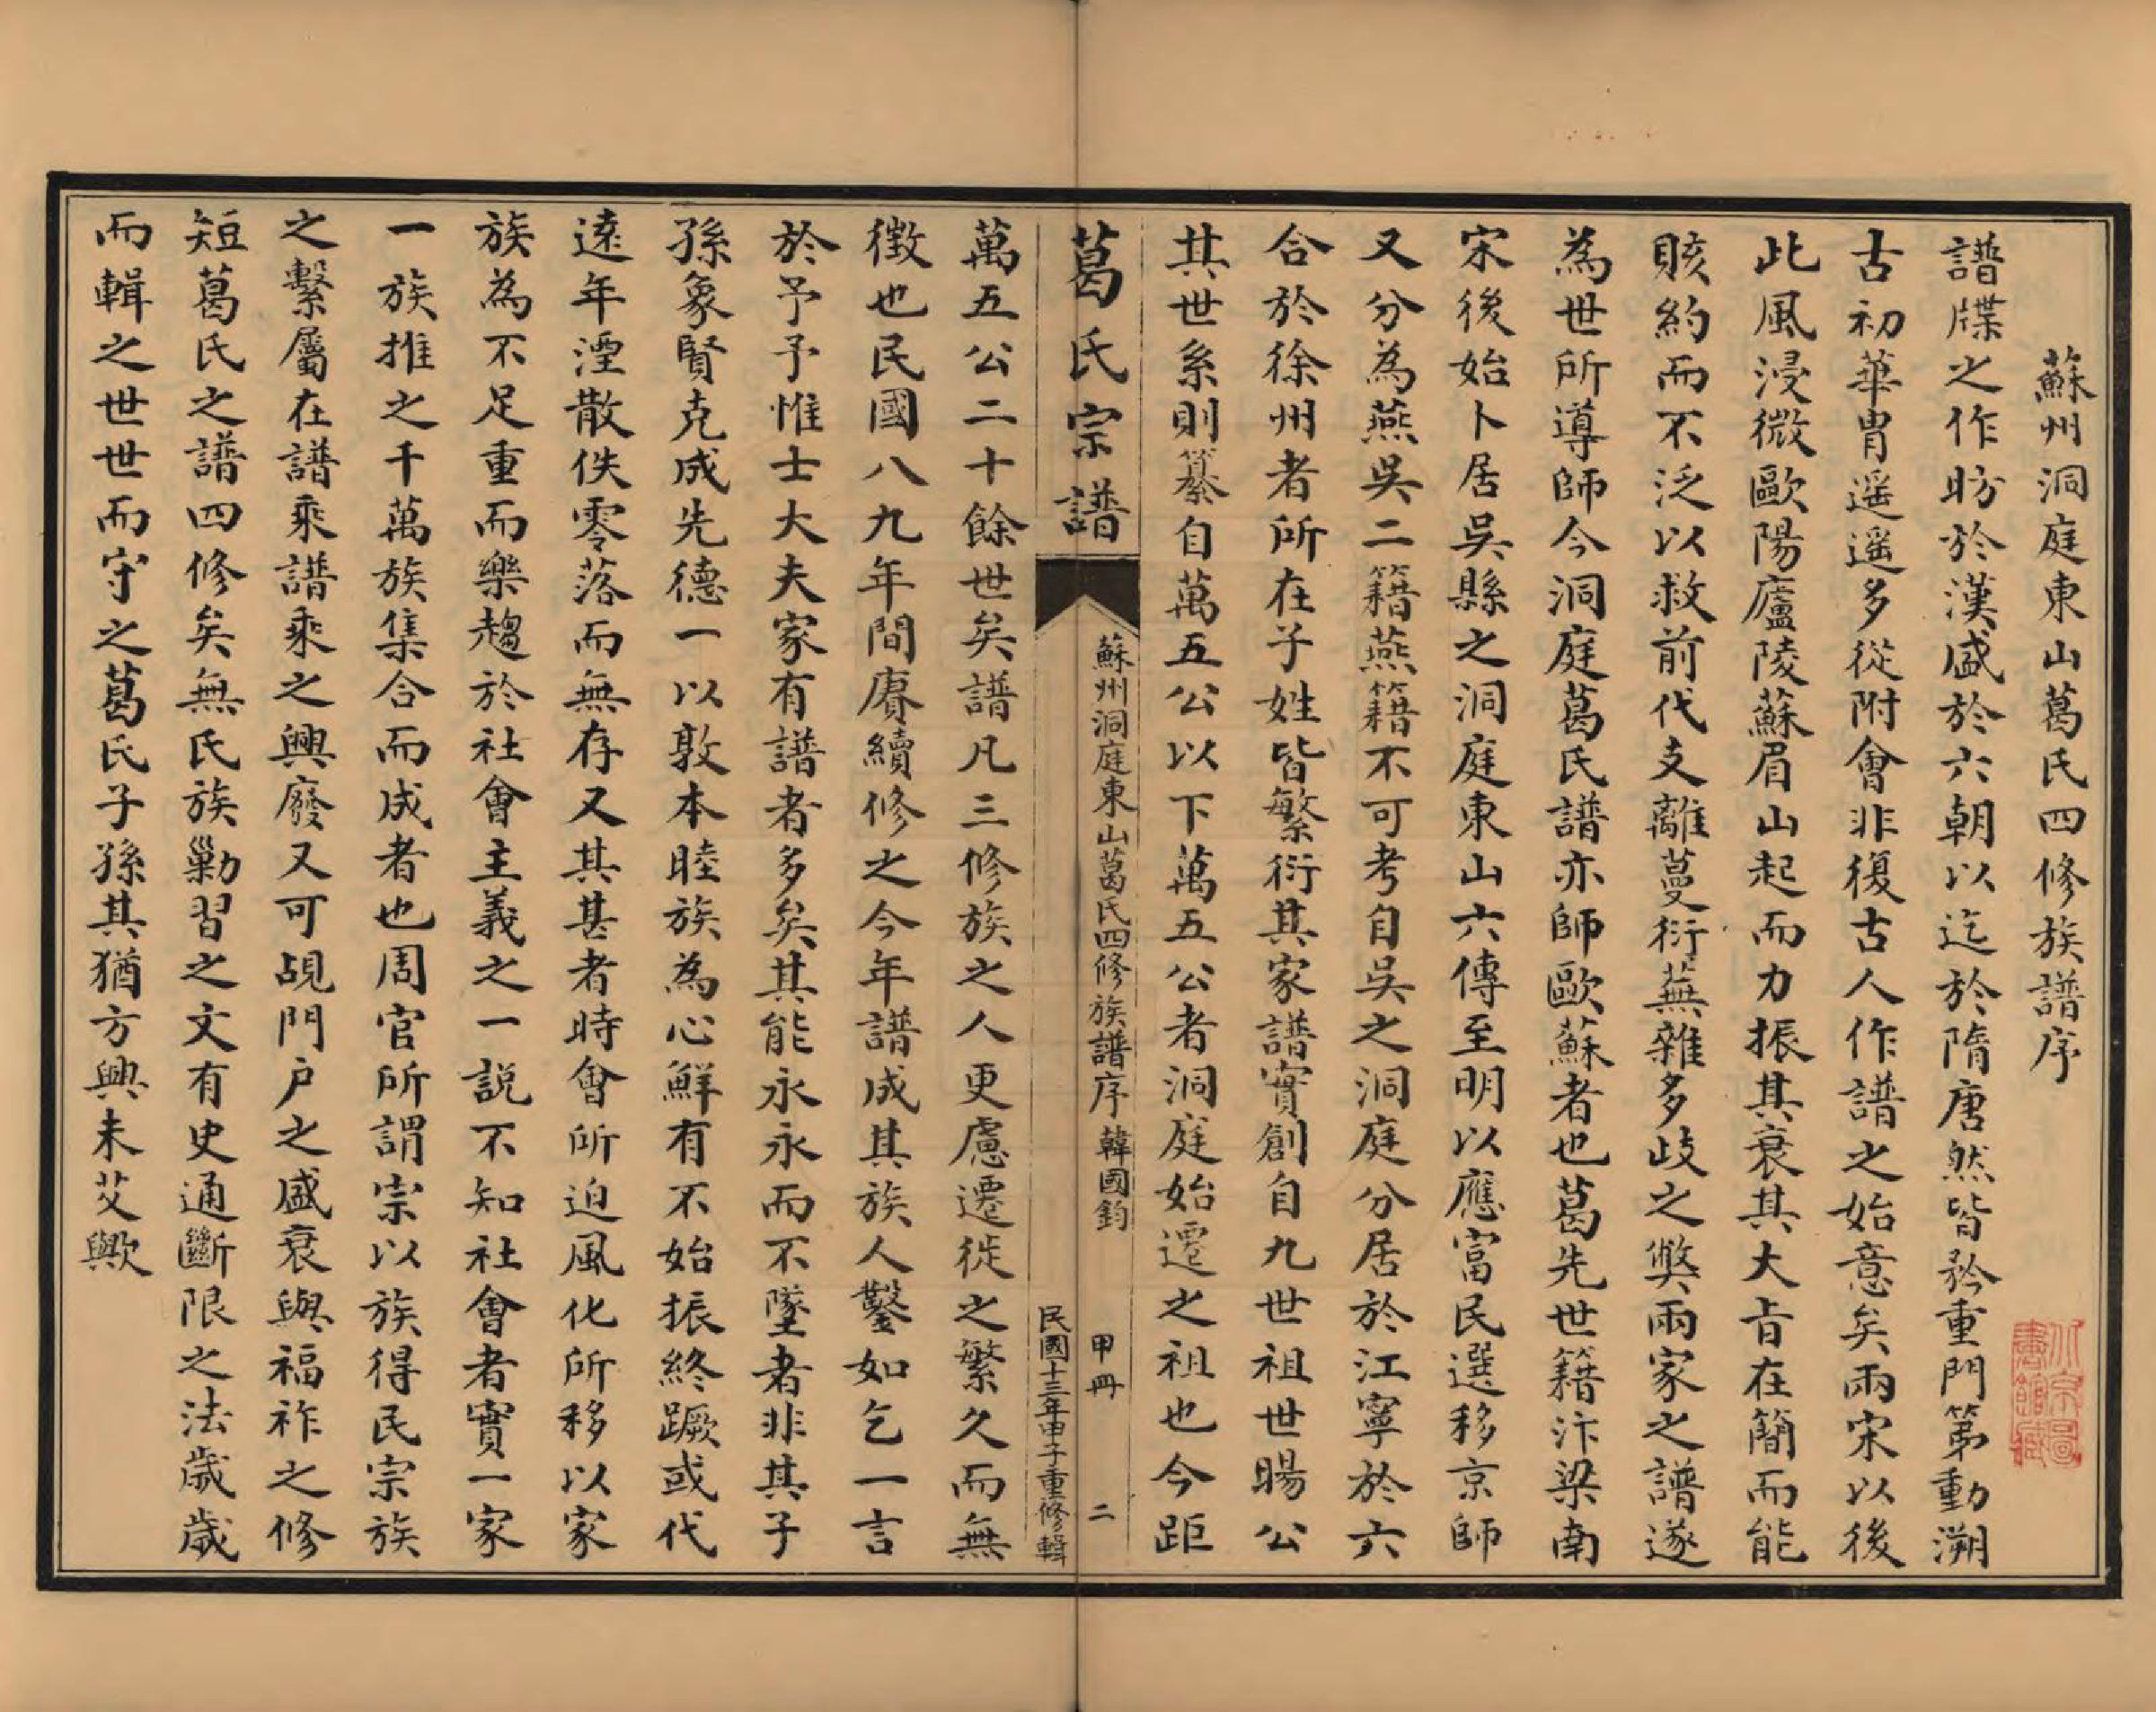 蘇州洞庭東山葛氏四修族譜序
譜牒之作昉於漢盛於六朝以迄於隋唐然皆矜重門第動溯
古初華胄遥遥多從附會非復古人作譜之始意矣兩宋以後
此風浸微歐陽廬陵蘇眉山起而力振其衰其大旨在簡而能
賅約而不泛以救前代支離蔓衍蕪雜多歧之獘兩家之譜遂
為世所導師今洞庭葛氏譜亦師歐蘇者也葛先世籍汴梁南
宋後始卜居吳縣之洞庭東山六傳至明以應富民選移京師
又分為燕吳二籍燕籍不可考自吳之洞庭分居於江寧於六
合於徐州者所在子姓皆繁衍其家譜實創自九世祖世暘公
其世系則纂自萬五公以下萬五公者洞庭始遷之祖也今距
葛氏宗譜
蘇州洞庭東山葛氏四修族譜序 韓國鈞
甲冊 二
民國十三年甲子重修輯
萬五公二十餘世矣譜凡三修族之人更慮遷徙之繁久而無
徵也民國八九年間賡續修之今年譜成其族人鑿如乞一言
於予予惟士大夫家有譜者多矣其能永永而不墜者非其子
孫象賢克成先德一以敦本睦族為心鮮有不始振終蹶或代
遠年湮散佚零落而無存又其甚者時會所迫風化所移以家
族為不足重而樂趨於社會主義之一説不知社會者實一家
一族推之千萬族集合而成者也周官所謂宗以族得民宗族
之繫屬在譜乘譜乘之興廢又可覘門户之盛衰與福祚之修
短葛氏之譜四修矣無氏族勦習之文有史通斷限之法歲歲
而輯之世世而守之葛氏子孫其猶方興未艾歟